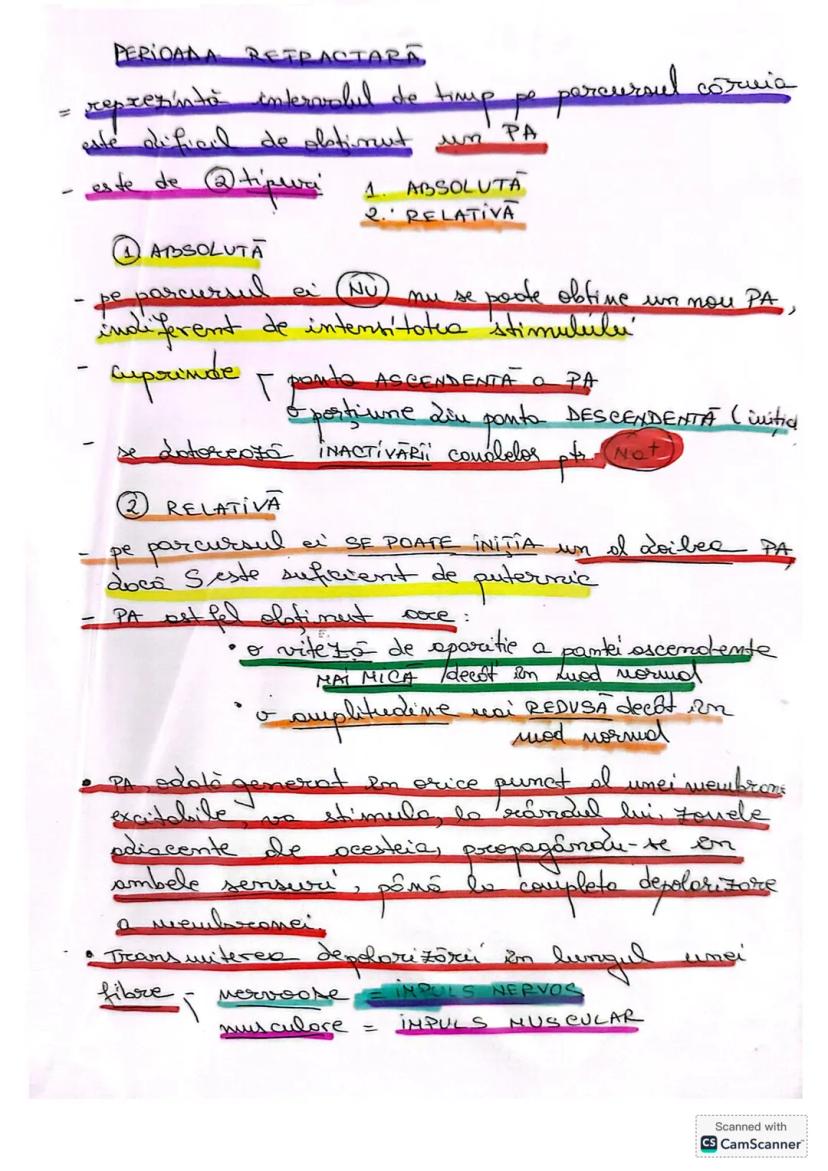 PERIOADA REFRACTARĂ
= reprezintă intervalul de timp pe parcursul căruia
este dificil de obținut un PA
- este de ② tipuri 1. ABSOLUTĂ
2. RELATIVĂ
① ABSOLUTĂ
- pe parcursul ei NU nu se poate obține un nou PA,
indiferent de intensitatea stimulului
- cuprinde panta ASCENDENTĂ a PA
o porțiune din panta DESCENDENTĂ (iniția
- se datorează INACTIVĂRII canalelor pt. Na+
② RELATIVĂ
- pe parcursul ei SE POATE INIȚIA un al doilea PA,
dacă S este suficient de puternic
- PA astfel obținut are:
• o viteză de apariție a pantei ascendente
MAI MICĂ decât în mod normal
• o amplitudine mai REDUSĂ decât în
mod normal
• PA, odată generat în orice punct al unei membrane
excitabile, va stimula, la rândul lui, zonele
adiacente ale acesteia, propagându-se în
ambele sensuri, până la completa depolarizare
a membranei.
• Transmiterea depolarizării în lungul unei
fibre - nervoase = IMPULS NERVOS
musculare = IMPULS MUSCULAR
Scanned with
CS CamScanner